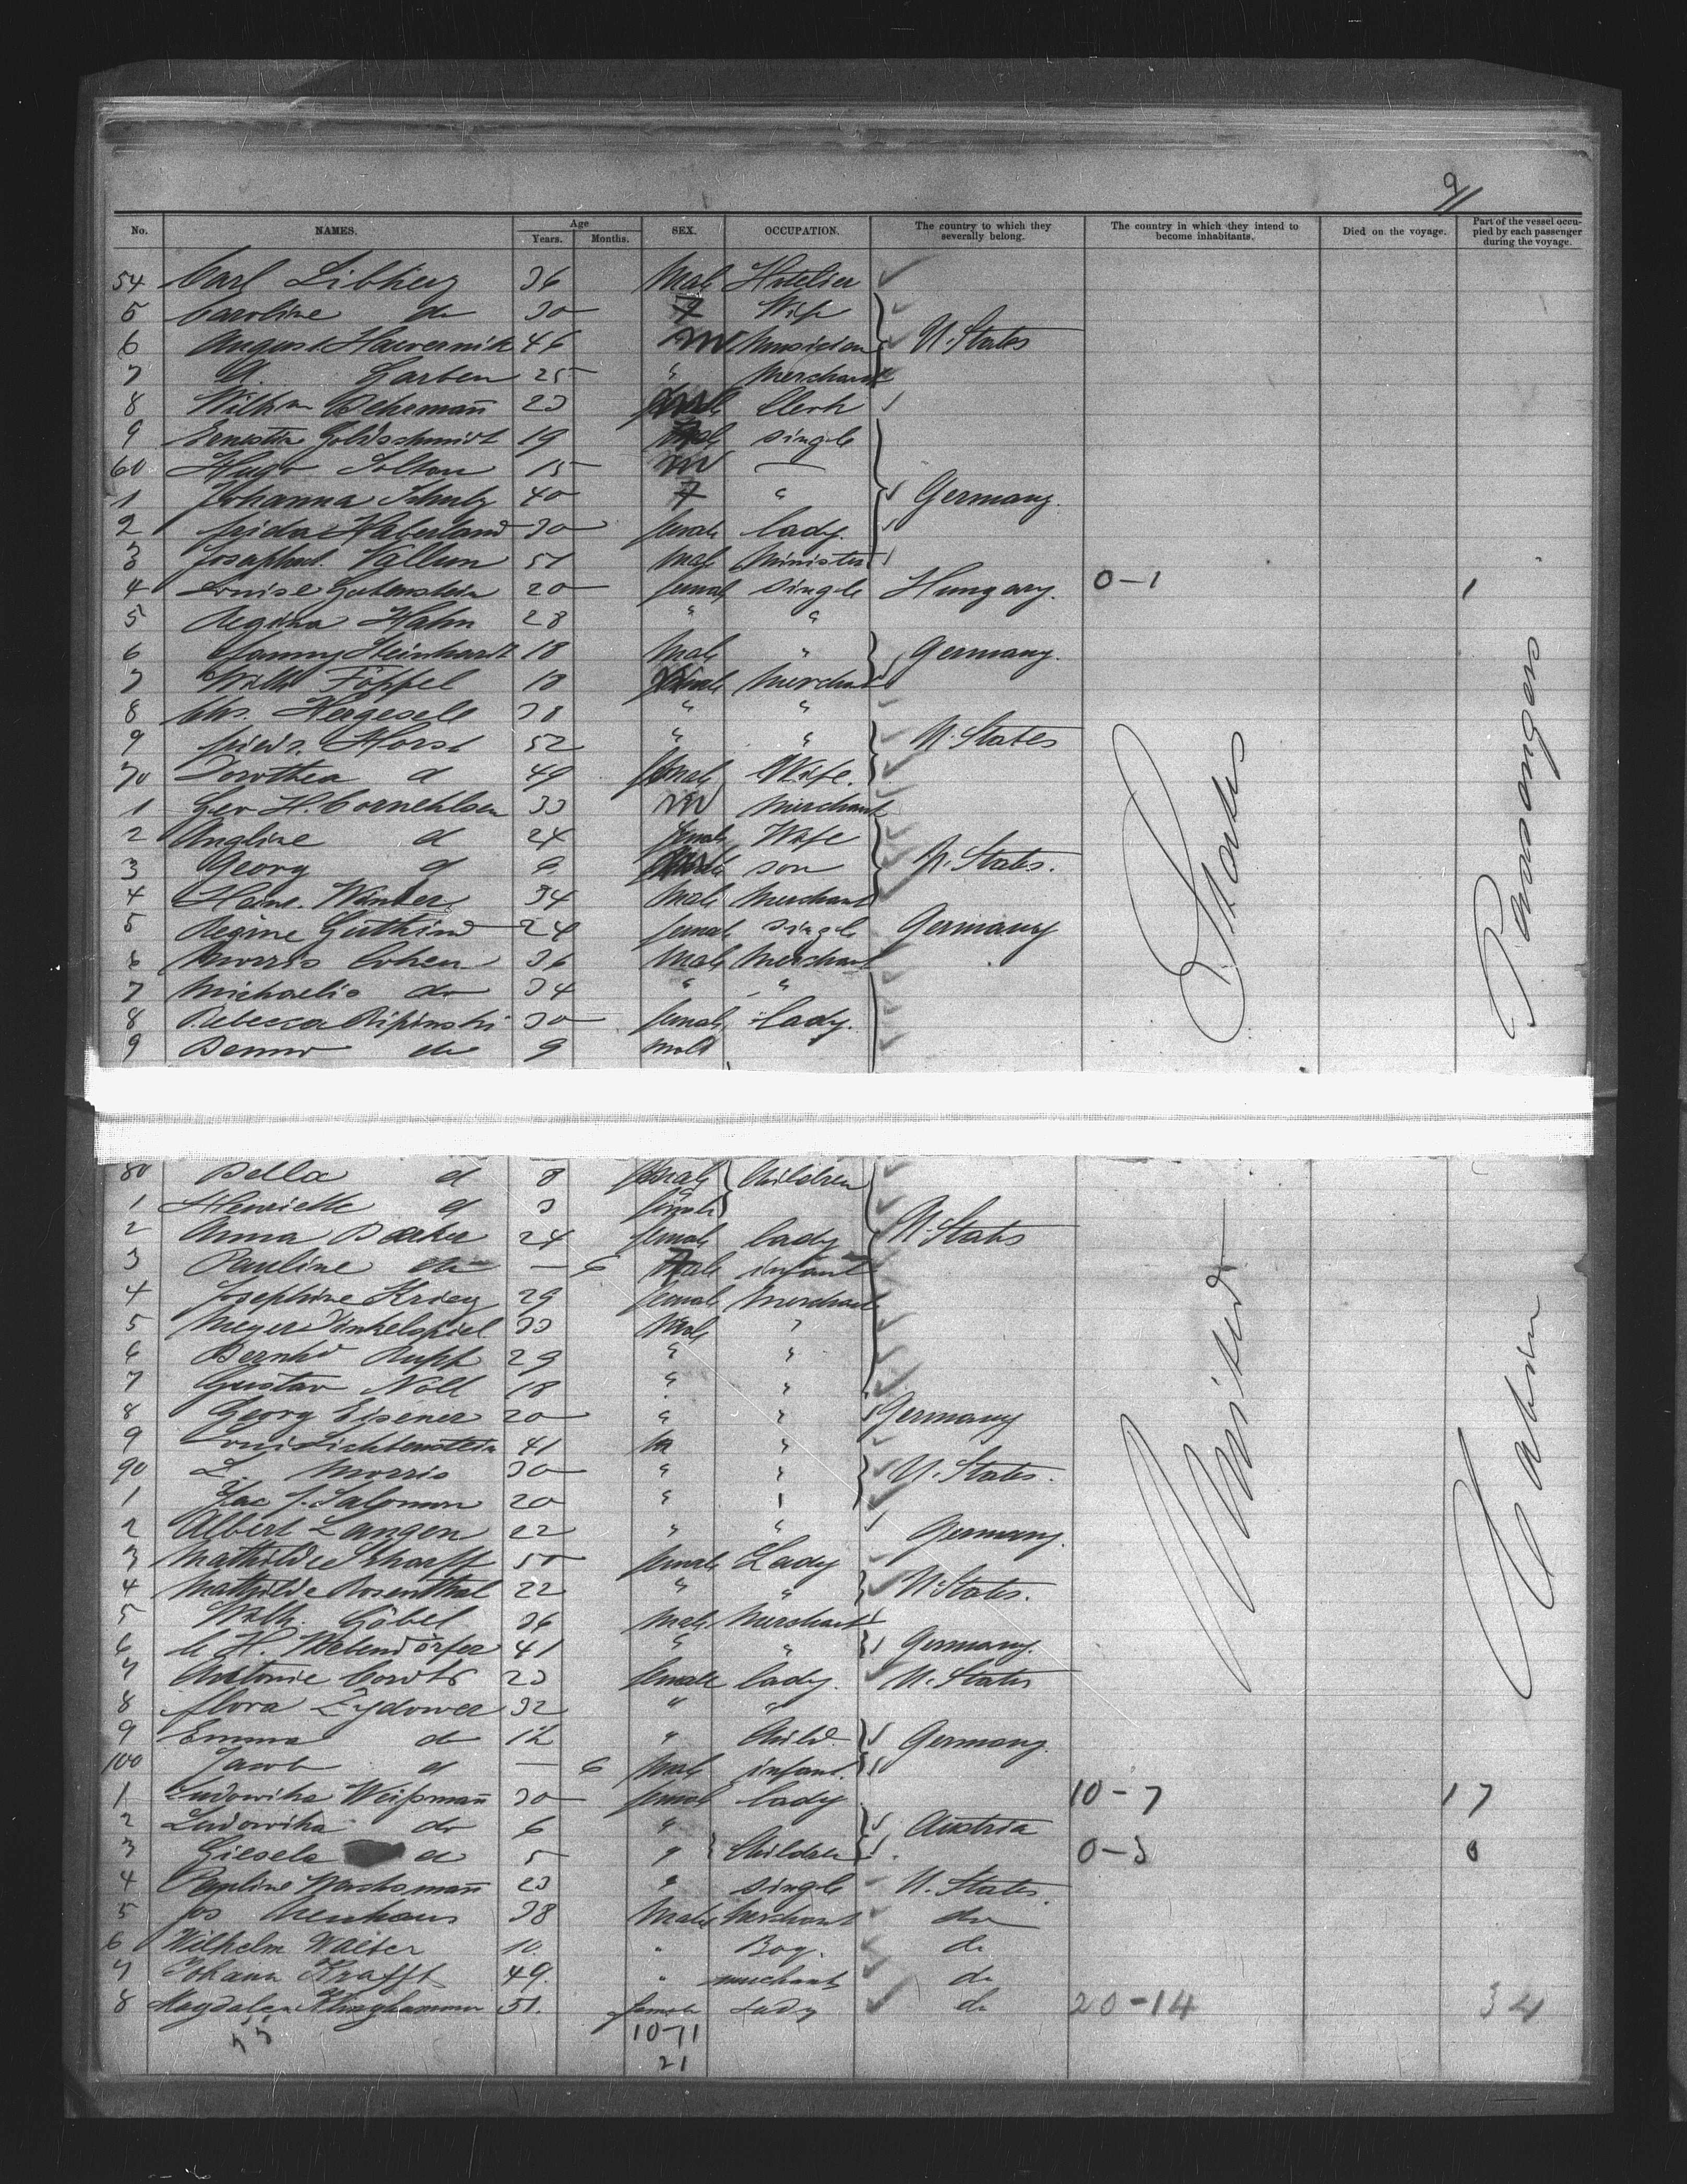 9/
No. NAMES. Age Years. Months. SEX. OCCUPATION. The country to which they severally belong. The country in which they intend to become inhabitants. Died on the voyage. Part of the vessel occupied by each passenger during the voyage.
54 Carl 36 Male Hotelier
5 Caroline do 30 F Wife
6 August Hawernik 46 M Musician U. States
7 Garben 25 " Merchant
8 Wilh Behrman̄ 23 Clerk
9 Goldschmidt 19 single
60 Hugo Soltan 15 M —
1 Johanna Schulz 40 F " Germany.
2 Frida Haberland 30 female lady.
3 51 Male Minister
4 Louise Gutenstein 20 female single Hungary. 0-1 1
5 Regina Hahn 28 " "
6 Fanny Steinhardt 18 Male " Germany.
7 Wilh Töppel 18 Merchant
8 Chs. Hergesell 38 " "
9 Friedr. Horst 52 " " U. States
70 Dorothea d 49 female Wife.
1 Geo H. Cornehlsen 33 M Merchant
2 Angline d 24 female Wife
3 Georg d son U. States.
4 Heinr. Winter 34 Male Merchant
5 Regine Guthind 24 female single Germany
6 Morris Cohen 36 Male Merchant
7 Michaelis do 34 " "
8 Rebecca Ripinski 30 female lady.
9 Benno do 9 male
80 Bella d 8 female Children
1 Henriette d 3 female
2 Anna 24 female lady U. States
3 Pauline do — 6 infant
4 Josephine Krieg 29 female Merchant
5 Meyer Dinkelspiel 33 Male "
6 Bernhd Rupp 29 " "
7 Gustav Nöll 18 " "
8 Georg Eisener 20 " " Germany
9 Louis Lichtenstein 41 " "
90 L. Morris 30 " " U. States.
1 Jac J. Salomon 20 " "
2 Albert Langen 22 " " Germany.
3 Mathilde Scharff 50 female Lady
4 Mathilde Rosenthal 22 " " U. States.
5 Wilh. Göbel 36 Male Merchant
6 C H. 41 " " Germany.
7 Antonie Cordts 23 female lady. U. States
8 Flora Zydower 32 " "
9 Emma do 12 " Child. Germany.
100 Jacob d — 6 Male infant.
1 Ludowika Weißman̄ 30 female lady 10-7 17
2 Ludowika do 6 " Austria
3 Giesela d 5 " Children 0-3
4 Pauline Wachsman̄ 23 " single U. States.
5 Jos Neuhaus 38 Male Merchant do
6 Wilhelm Walter 10. " Boy. do
7 Johann Krafft 49. " merchant do
8 Magdalen Klinghammer 51. female Lady do 20-14 34
55 10-11
21
United States
Cabin Passengers